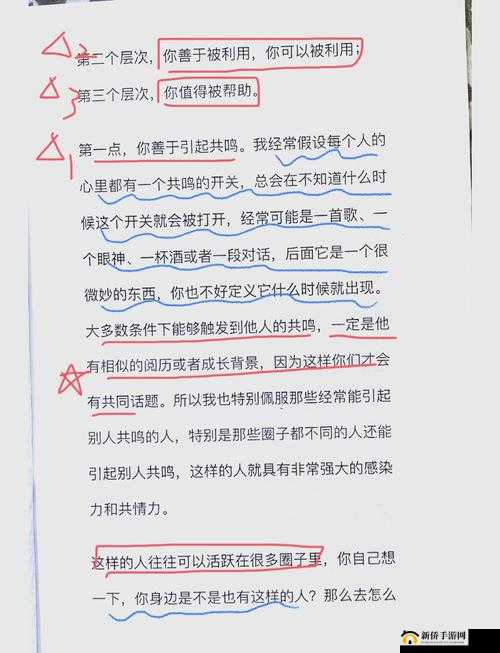 2
第二个层次，你善于被利用，你可以被利用；
3
第三个层次，你值得被帮助。
1
第一点，你善于引起共鸣。我经常假设每个人的
心里都有一个共鸣的开关，总会在不知道什么时
候这个开关就会被打开，经常可能是一首歌、一
个眼神、一杯酒或者一段对话，后面它是一个很
微妙的东西，你也不好定义它什么时候就出现。
大多数条件下能够触发到他人的共鸣，一定是他
有相似的阅历或者成长背景，因为这样你们才会
有共同话题。所以我也特别佩服那些经常能引起
别人共鸣的人，特别是那些圈子都不同的人还能
引起别人共鸣，这样的人就具有非常强大的感染
力和共情力。
这样的人往往可以活跃在很多圈子里，你自己想
一下，你身边是不是也有这样的人？那么去怎么
新侨手游网